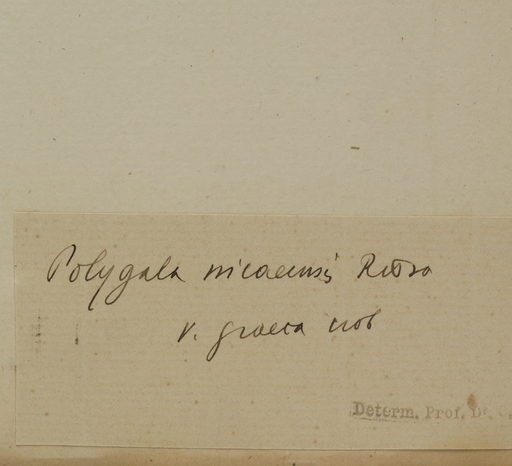 Polygala nicaeensis Risso
v. graeca
Determ. Prof. Dr.